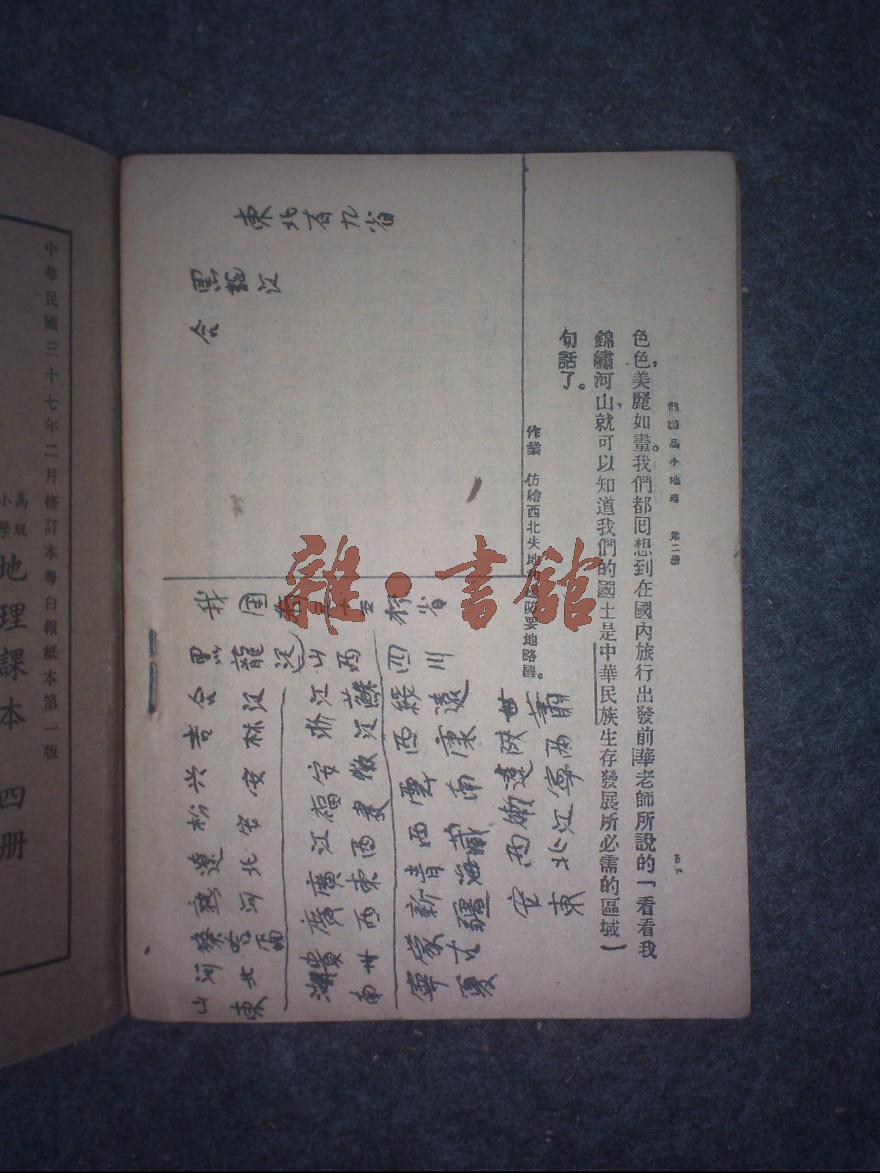 色色,美麗如畫。我們都回想到在國內旅行出發前華老師所說的一看看我
錦繡河山,就可以知道我們的國土是中華民族生存發展所必需的區域一
句話了。
高小地理 第二册
作業 仿繪西北失地
要地略圖。
東北有九省
黑龍江
合
我国
省
黑龍江
山西
四川
合吉兴松遼熱察河山
江林安
北河
北東
浙江福江廣廣貴湖
蘇江
西東西
州南
綏西
青新蒙寧
遠康南藏海疆古夏
陝
西
安
甘肅
寧西
江北東
中華民國三十七年二月修訂本粵白報紙本第一版
高級
小學
地理課本 四册
雜·書館